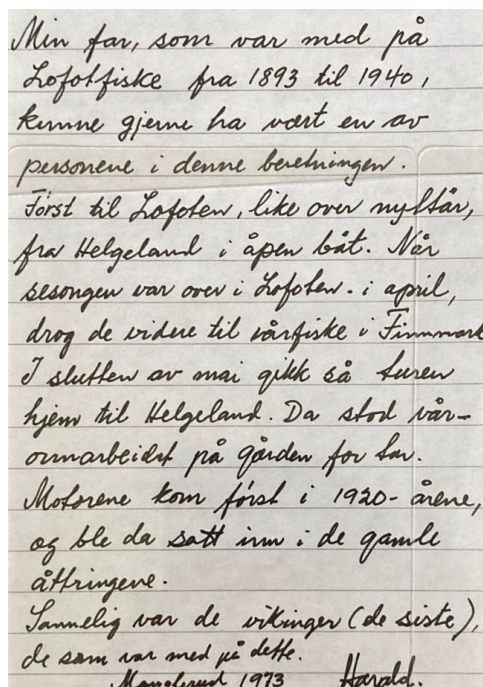 Min far, som var med på
Lofotfiske fra 1893 til 1940,
kunne gjerne ha vært en av
personene i denne beretningen.
Først til Lofoten, like over nyttår,
fra Helgeland i åpen båt. Når
sesongen var over i Lofoten - i april,
drog de videre til vårfiske i Finnmark
I slutten av mai gikk så turen
hjem til Helgeland. Da stod vår-
onnarbeidet på gården for tur.
Motorene kom først i 1920-årene,
og ble da satt inn i de gamle
åttringene.
Sannelig var de vikinger (de siste),
de som var med på dette.
Manglerud 1973 Harald.